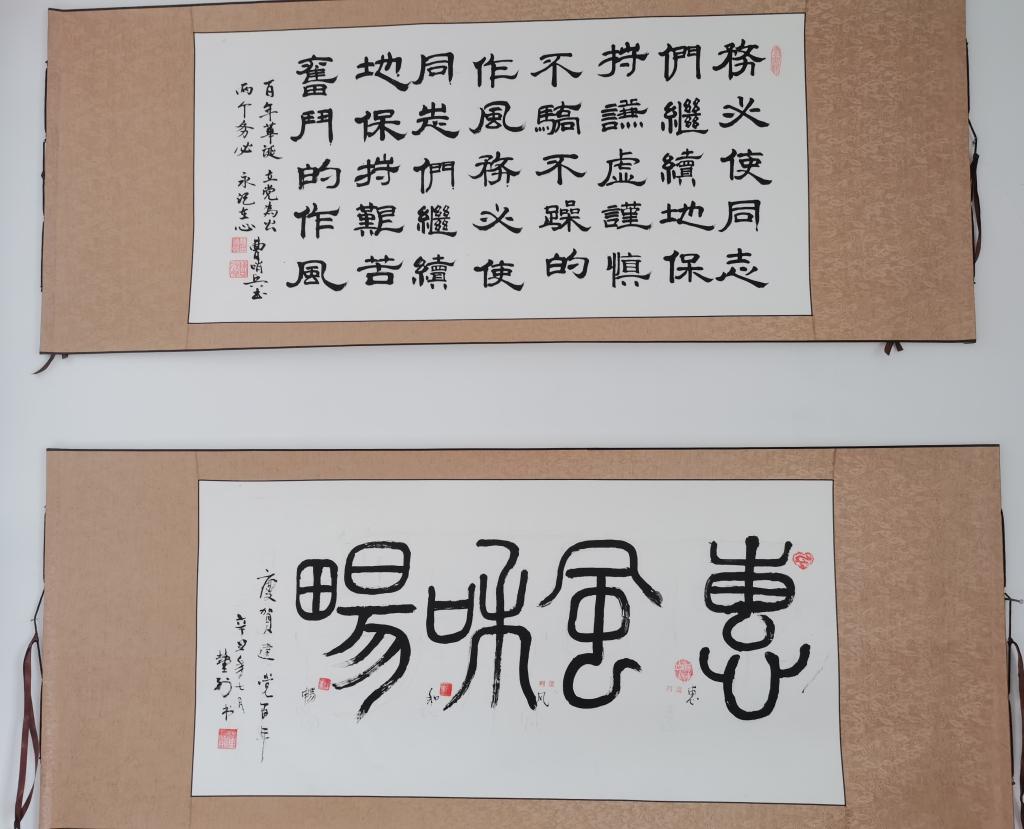 務必使同志
們繼續地保
持謙虛謹慎
不驕不躁的
作風務必使
同志們繼續
地保持艱苦
奮鬥的作風
百年華誕 立党為公
两个务必 永记在心
曹哨兵书
惠風和暢
惠
风
和
畅
慶賀建党百年
辛丑年七月